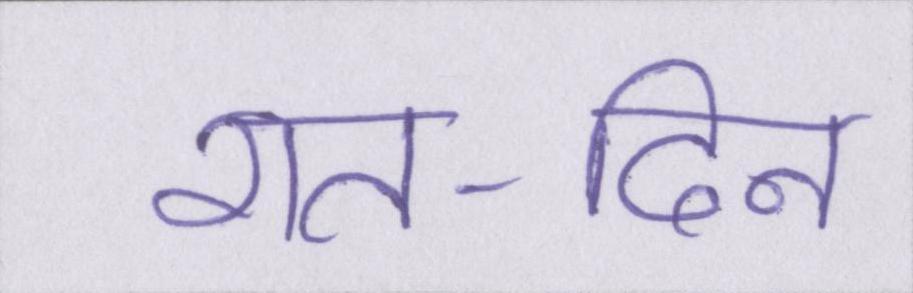 रात-दिन